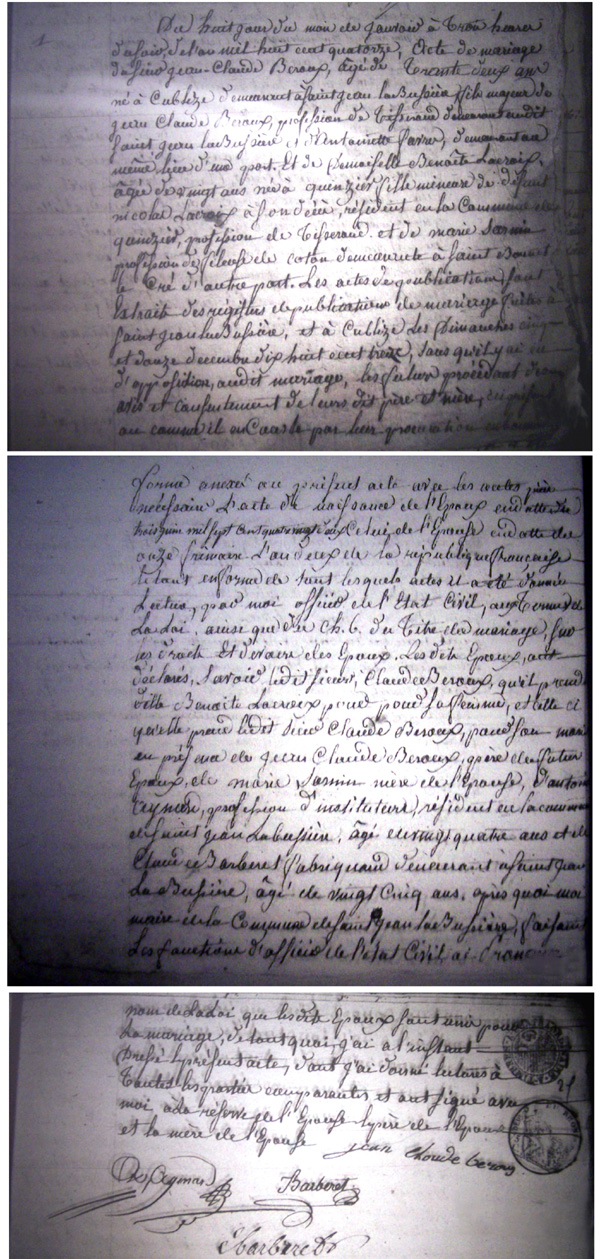 1
Du huit jour du moi de janvier à Trois heures
du soir, de l'an mil huit cent quatorze, Acte de mariage
du sieur jean-Claude Beroux, âgé de Trente deux ans
né à Cublize demeurant à saint jean la Bussière fils majeur de
jean Claude Beroux, profession de Tisserand demeurant audit
saint jean la Bussière et d'Antoinette demeurant au
même lieu d'une part. Et de Demoiselle Benoite Lacroix,
âgée de vingt ans née à quinzier fille mineure de défunt
nicolas Lacroix à son décè, résident en la Commune de
quinzier, profession de Tisserand. et de marie
profession de fileuse de coton demeurante à saint Bonnet
le Cré d'autre part. Les actes de publication sont
Extrait des régistres de publications de mariage faites à
saint jean la Bussière, et à Cublize Les Dimanches cinq
et douze decembre dix huit cent treize, sans qu'il y ai eu
d'opposition audit mariage, les futur procédant de
avis et consentement de leurs dit père et mère,
ou comme il en Conste par leur procuration en bonne
forme annexé au présent acte avec les autres pièce
nécéssaire L'acte de naissance de l'Epoux en datte du
trois juin mil sept cent quatre vingt Celui de l'Epouse en datte du
onze frimaire L'an deux de la republique francaise
le tout en forme de tout lesquels actes il a été donnée
Lecture, par moi officié de l'Etat Civil, aux Termes de
La Loi, ainsi que du Ch. 6. du Titre du mariage, sur
les droits Et devoire des Epoux, Les dits Epoux, ont
déclarés, savoir ledit sieur, Claude Beroux, qu'il prend
dille Benoite Lacroix pour sa femme, et elle ci
qu'elle prend ledit sieur Claude Beroux, pour son mari
en présence de jean Claude Beroux, père du futur
Epoux, de marie mère de l'Epouse, d'antoin
profession d'instituteur, résident en la commune
de saint jean Labussière, âgé vingt quatre ans et de
Claude Barberet fabriquand demeurant à saint jean
La Bussière, âgé de vingt Cinq ans. après quoi moi
maire de la Commune de saint jean la Bussière, faisant
Les fonctions d'officié de l'état Civil ai
nom de La Loi que lesdits Epoux sont unis pour
Le mariage, de tout quoi, j'ai à l'instant
Dressé le présent acte, dont j'ai donné lecture à
Toutes les comparantes, et ont signé avec
moi, à la réserve de l'Epouse le père de l'Epoux
et la mère de l'Epouse
jean Claude
Barberet
Barberet